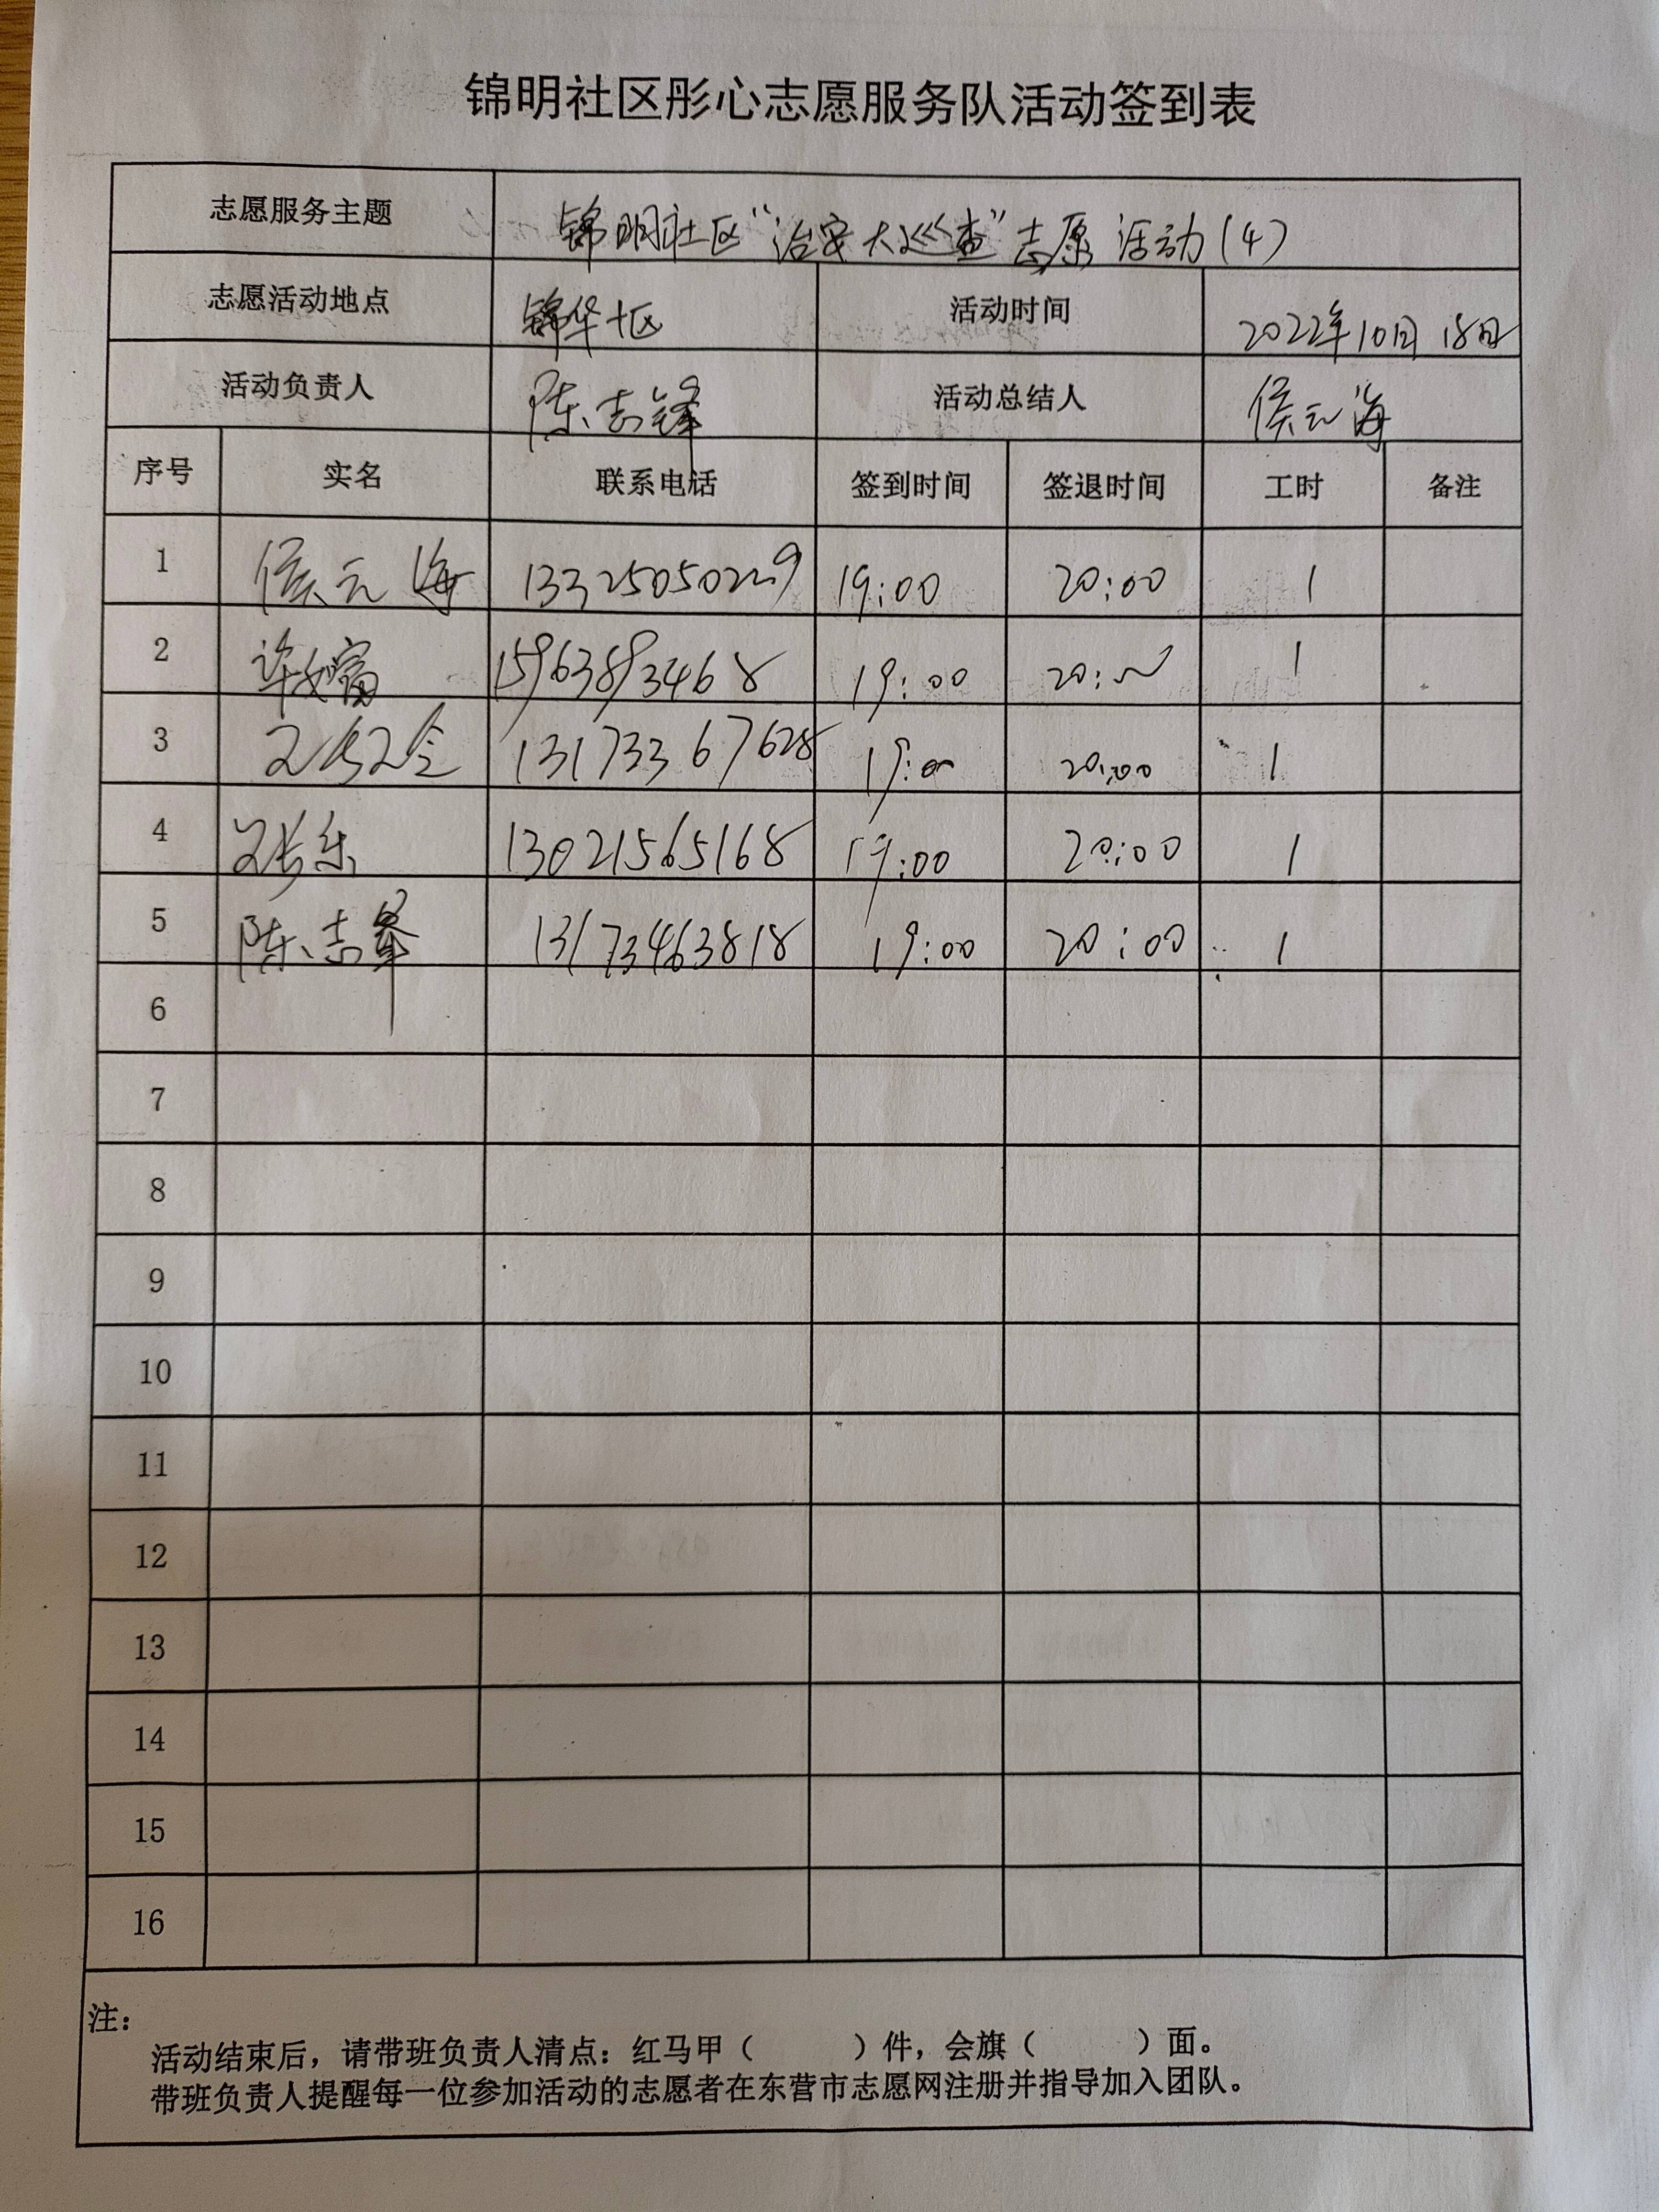 锦明社区彤心志愿服务队活动签到表
志愿服务主题 锦明社区“治安大巡查”志愿活动(4)
志愿活动地点 锦华十区 活动时间 2022年10月18日
活动负责人 陈志锋 活动总结人 侯元海
序号 实名 联系电话 签到时间 签退时间 工时 备注
1 侯元海 13325050229 19:00 20:00 1
2 15963893468 19:00 20:00 1
3 13173367628 19:00 20:00 1
4 13021565168 19:00 20:00 1
5 陈志峰 13173463818 19:00 20:00 1
6
7
8
9
10
11
12
13
14
15
16
注：
活动结束后，请带班负责人清点：红马甲（ ）件，会旗（ ）面。
带班负责人提醒每一位参加活动的志愿者在东营市志愿网注册并指导加入团队。